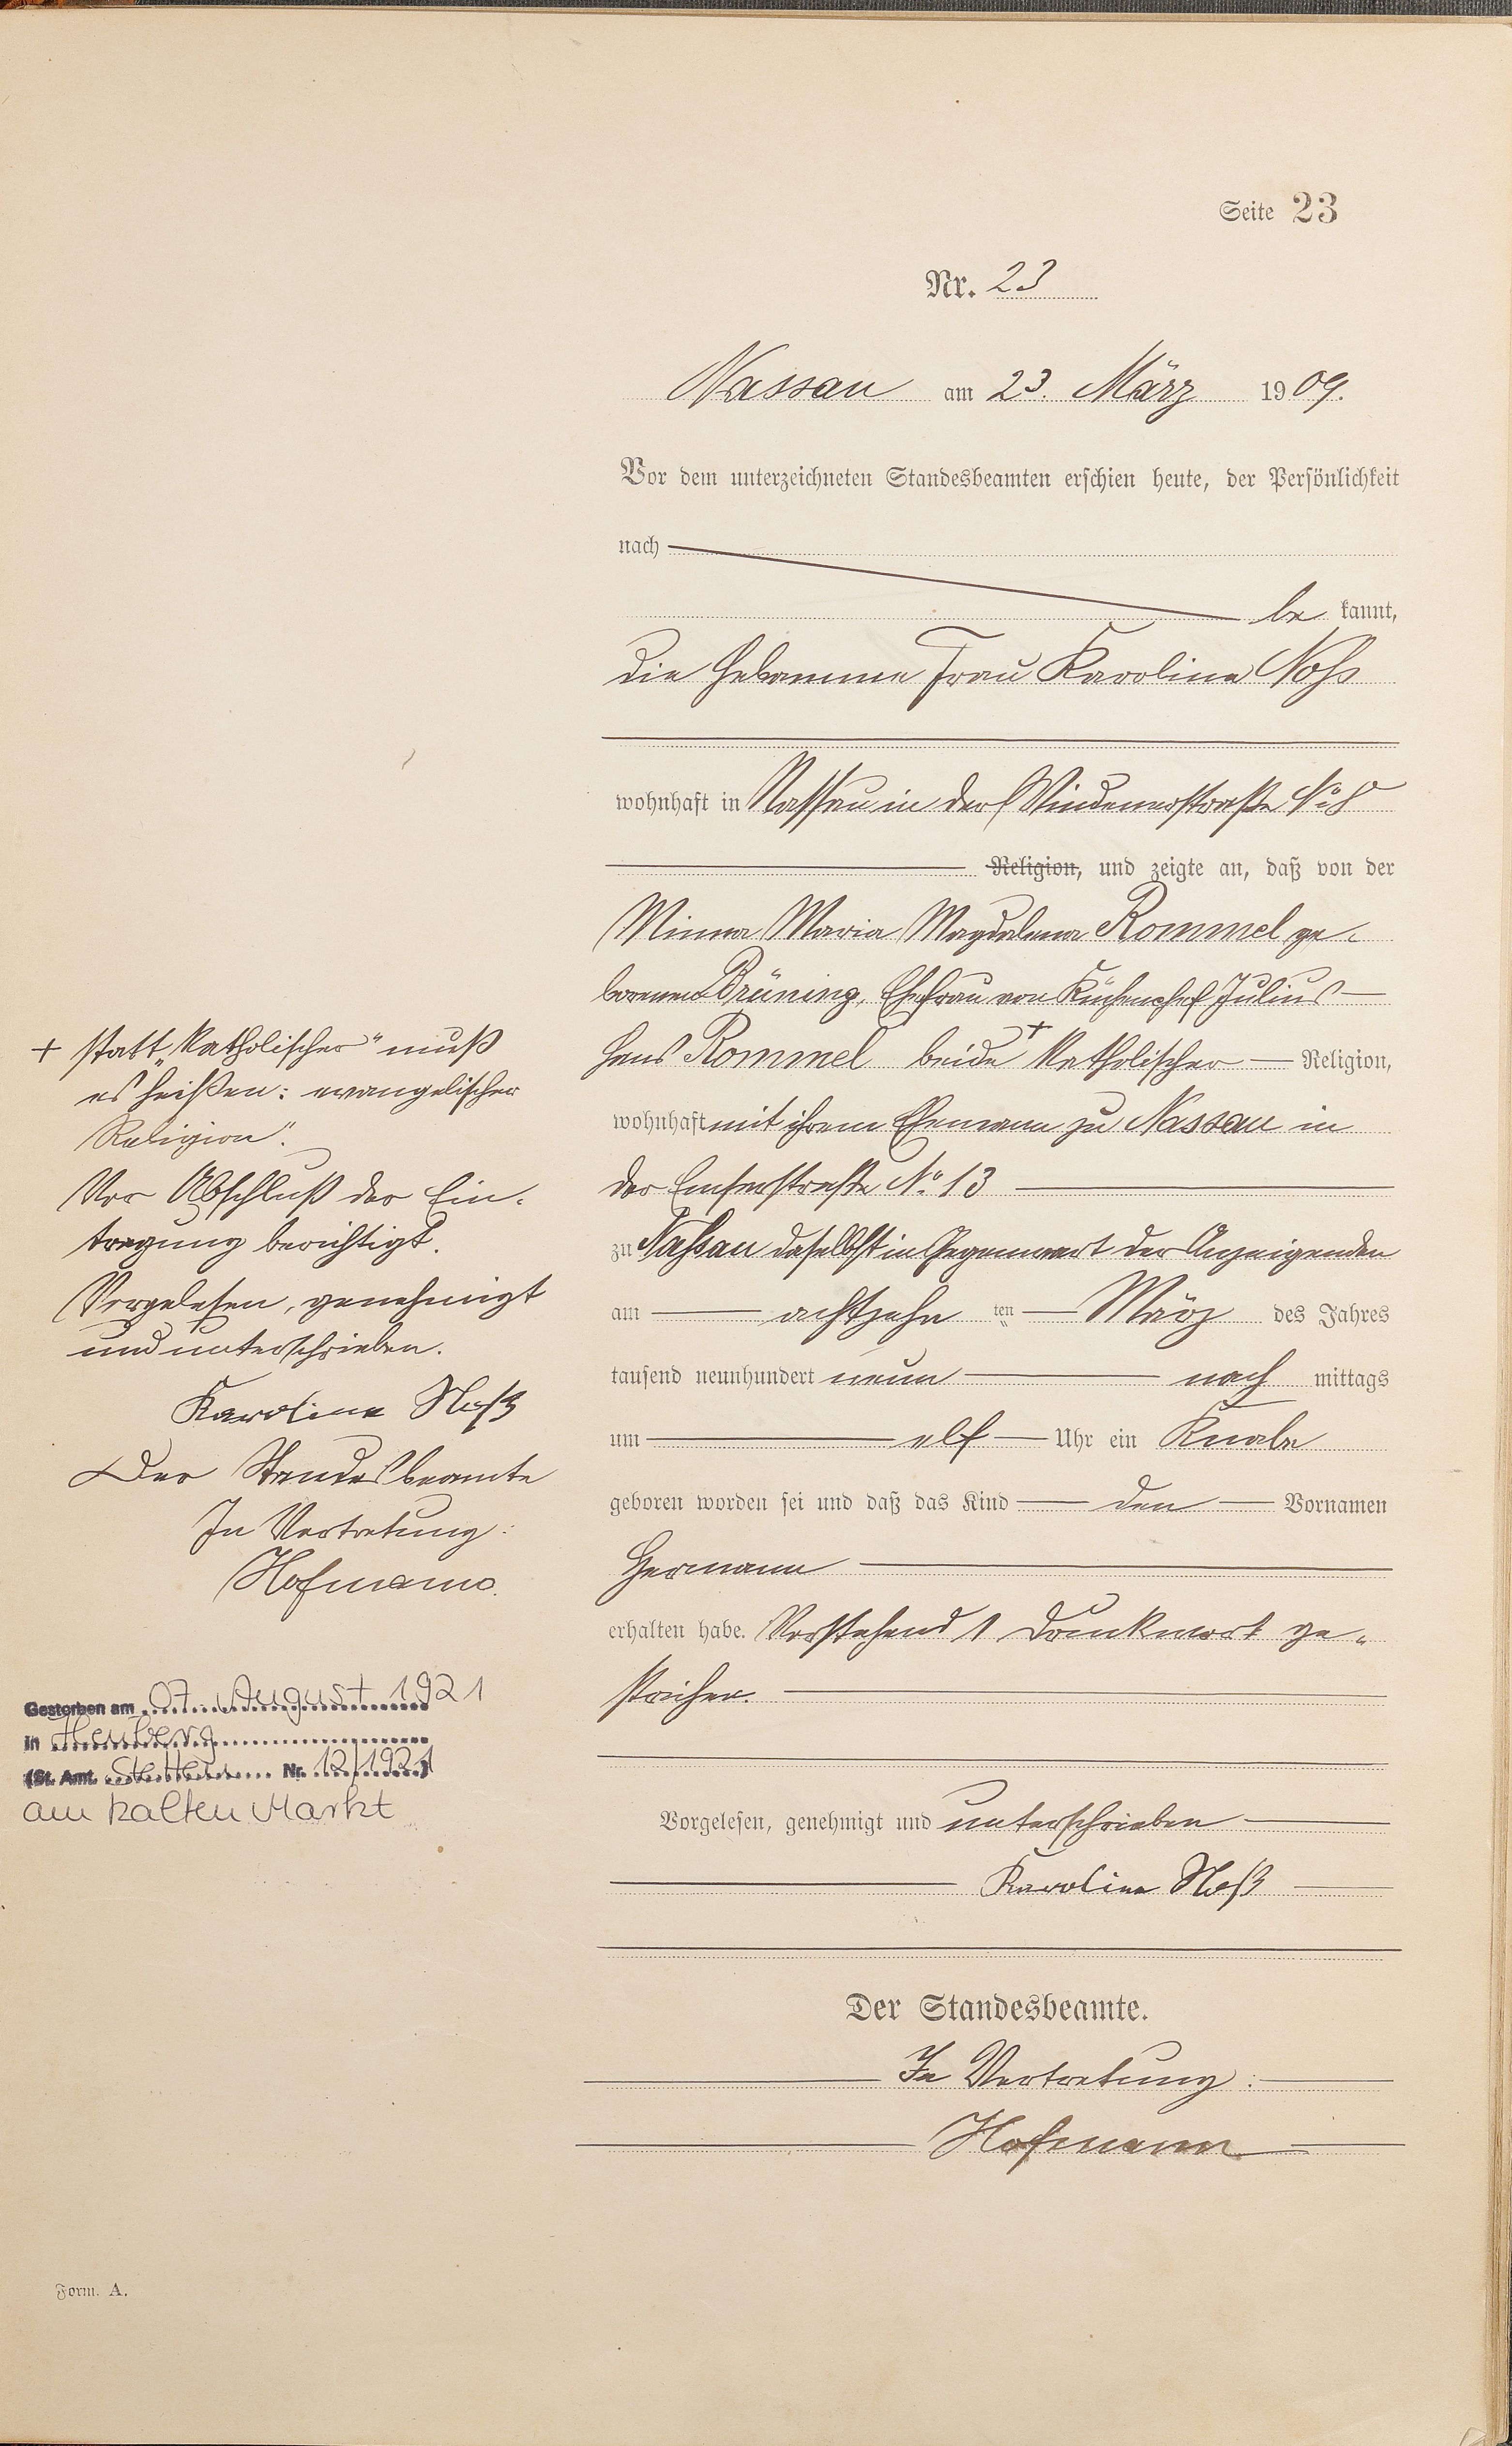 Seite 23
Nr. 23
Nassau am 23. März 1909.
Vor dem unterzeichneten Standesbeamten erschien heute, der Persönlichkeit
nach
be kannt,
die Hebamme Frau Karolina Noß
wohnhaft in Nassau in der Windenerstraße No 8
Religion, und zeigte an, daß von der
Minna Maria Magdalena Rommel ge-
borenen Brüning, Ehefrau von Küchenchef Julius
Hans Rommel beide + katholischer Religion,
wohnhaft mit ihrem Ehemann zu Nassau in
der Emserstraße No 13
zu Nassau daselbst in Gegenwart der Anzeigenden
am achtzehn ten März des Jahres
tausend neunhundert neun nach mittags
um elf Uhr ein Knabe
geboren worden sei und daß das Kind den Vornamen
Hermann
erhalten habe. Vorstehend 1 Druckwort ge-
strichen.
Vorgelesen, genehmigt und unterschrieben
Karolina Noß
Der Standesbeamte.
In Vertretung:
Hofmann
+ statt „katholischer" muß
es heißen: evangelischer
Religion".
Vor Abschluß der Ein-
tragung berichtigt.
Vorgelesen, genehmigt
und unterschrieben.
Karolina Noß
Der Standesbeamte
In Vertretung:
Hofmann.
Gestorben am 07. August 1921
in Heuberg
(St. Amt. Stetten Nr. 12/1921)
am kalten Markt
Form. A.